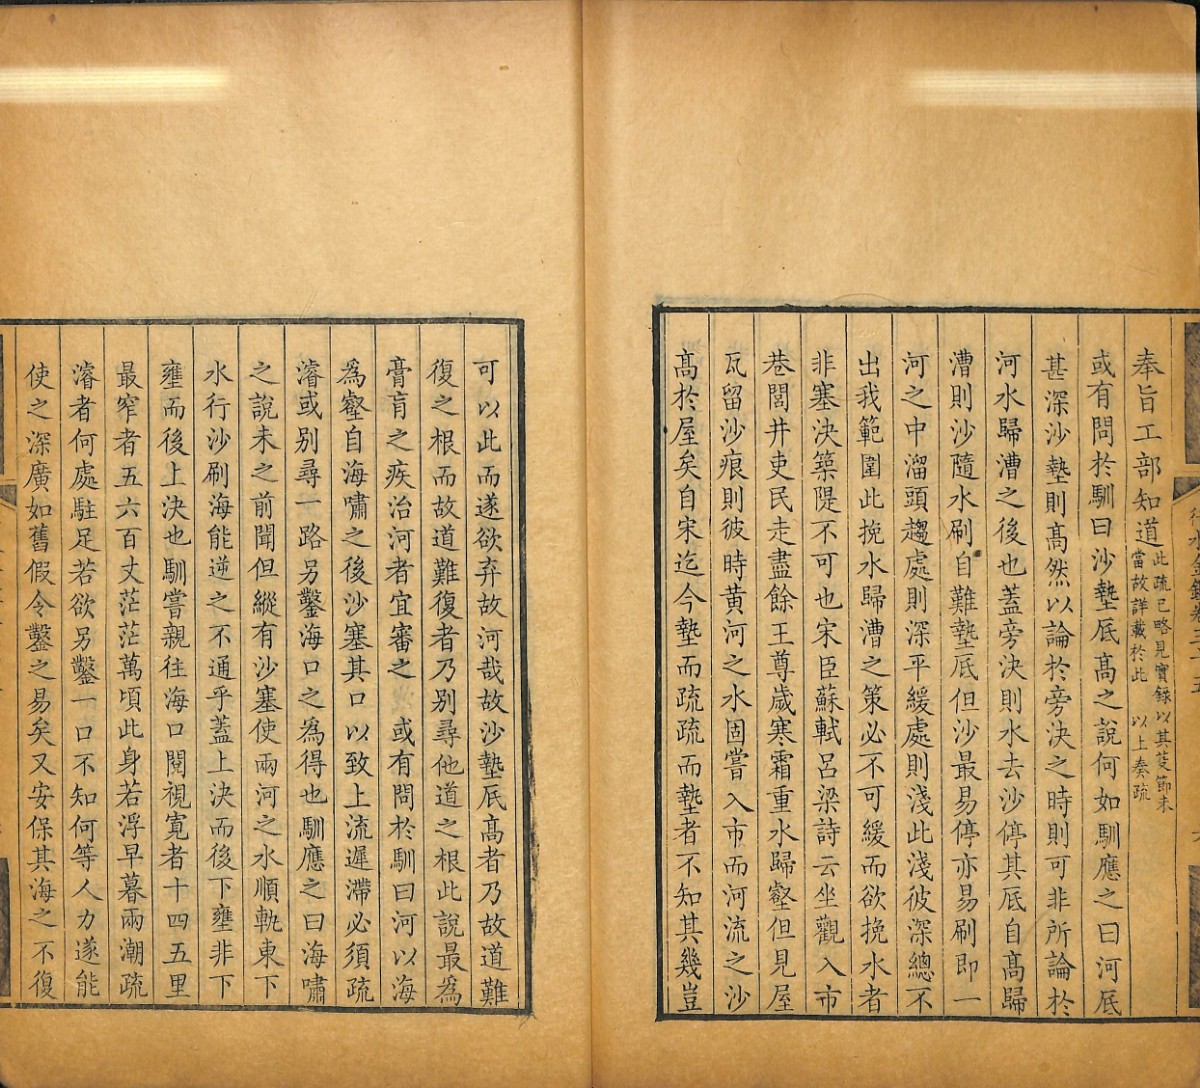 奉旨工部知道此疏已略見實錄以其芟節未
當故詳載於此　以上奏疏
或有問於馴曰沙墊底高之說何如馴應之曰河底
甚深沙墊則高然以論於旁決之時則可非所論於
河水歸漕之後也蓋旁決則水去沙停其底自高歸
漕則沙隨水刷自難墊底但沙最易停亦易刷即一
河之中溜頭趨處則深平緩處則淺此淺彼深總不
出我範圍此挽水歸漕之策必不可緩而欲挽水者
非塞決築隄不可也宋臣蘇軾呂梁詩云坐觀入市
巷閭井吏民走盡餘王尊歲寒霜重水歸壑但見屋
瓦留沙痕則彼時黃河之水固嘗入市而河流之沙
高於屋矣自宋迄今墊而疏疏而墊者不知其幾豈
可以此而遂欲弃故河哉故沙墊底高者乃故道難
復之根而故道難復者乃別尋他道之根此說最為
膏肓之疾治河者宜審之　或有問於馴曰河以海
為壑自海嘯之後沙塞其口以致上流遲滯必須疏
濬或別尋一路另鑿海口之為得也馴應之曰海嘯
之說未之前聞但縱有沙塞使兩河之水順軌東下
水行沙刷海能逆之不通乎蓋上決而後下壅非下
壅而後上決也馴嘗親往海口閱視寬者十四五里
最窄者五六百丈茫茫萬頃此身若浮早暮兩潮疏
濬者何處駐足若欲另鑿一口不知何等人力遂能
使之深廣如舊假令鑿之易矣又安保其海之不復